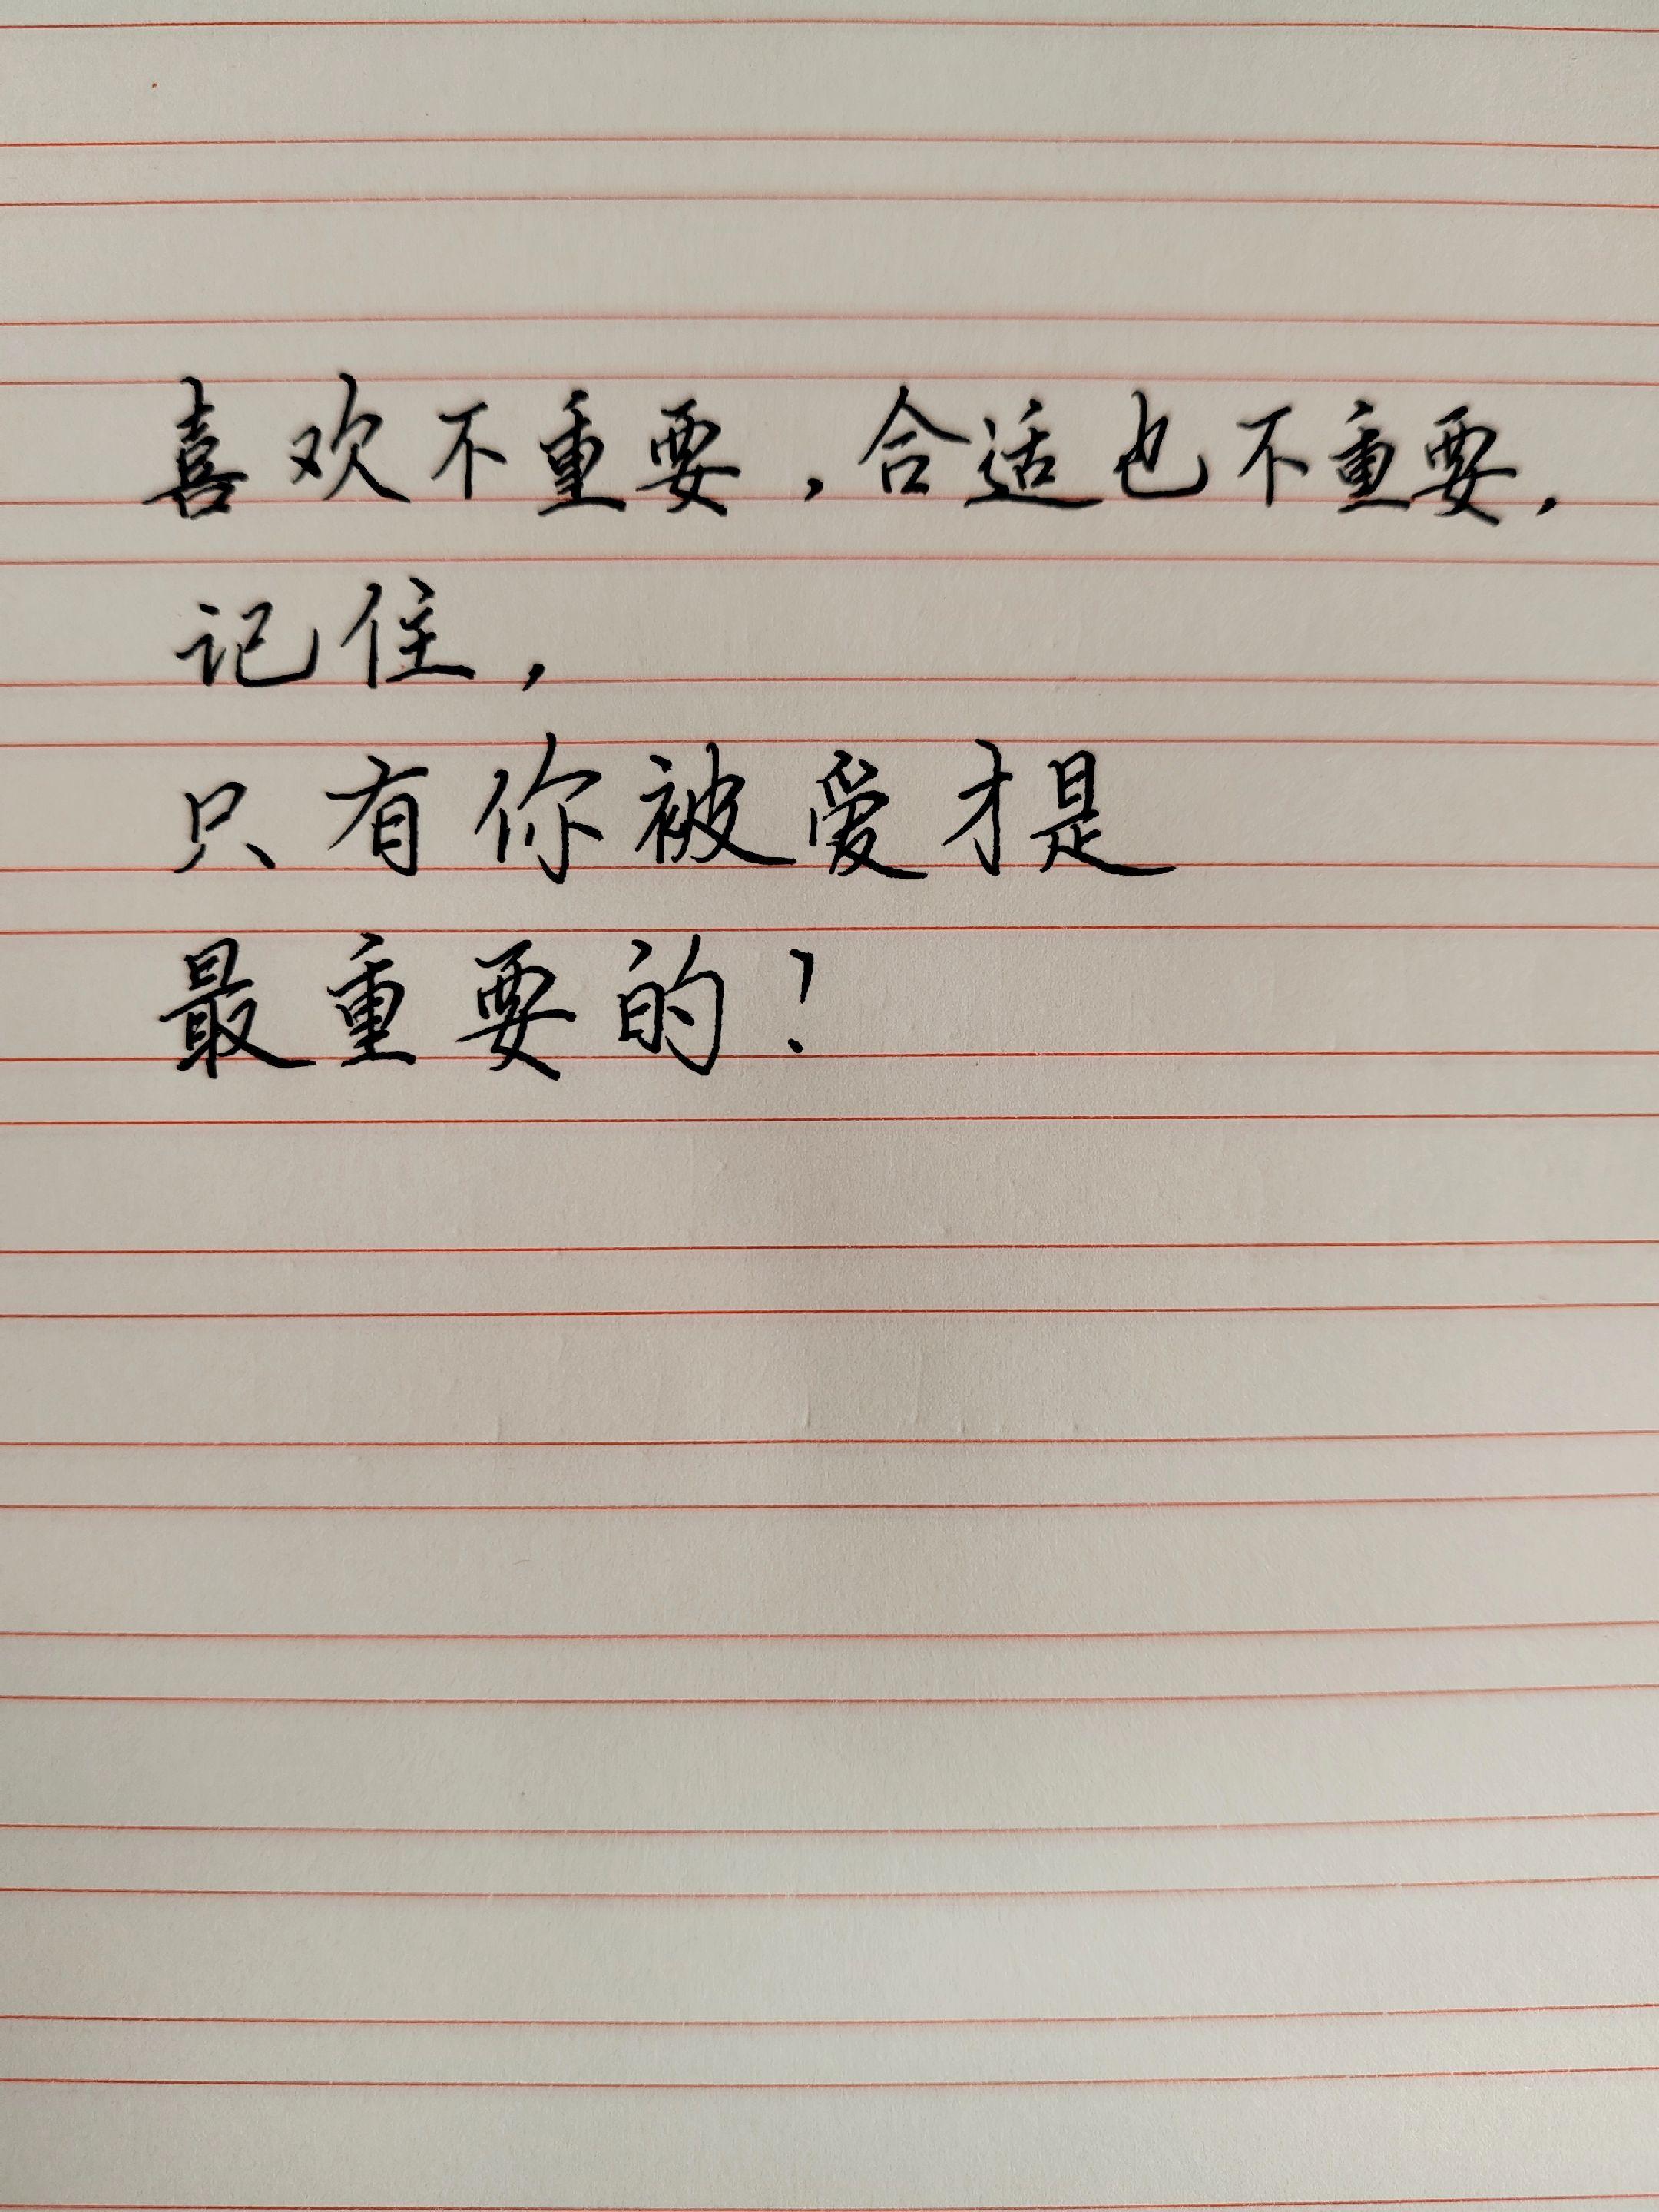 喜欢不重要，合适也不重要，
记住，
只有你被爱才是
最重要的！